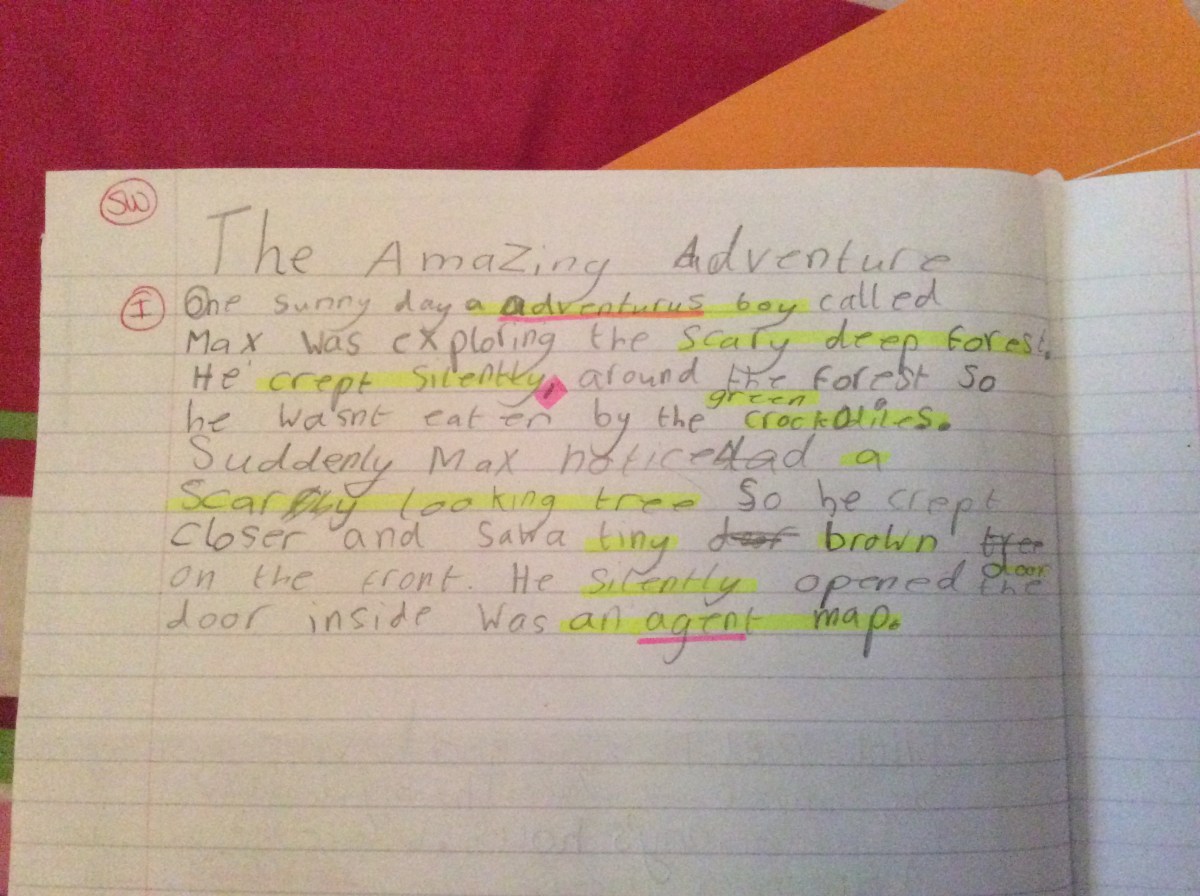 SW
The Amazing Adventure
I
One sunny day a adventurus boy called
Max was exploring the scary deep forest.
He crept silently, around the forest so
green
he wasnt eaten by the crockodiles.
Suddenly Max noticed a
Scary looking tree so he crept
Closer and saw a tiny door brown tree
door
on the front. He silently opened the
door inside was an agent map.